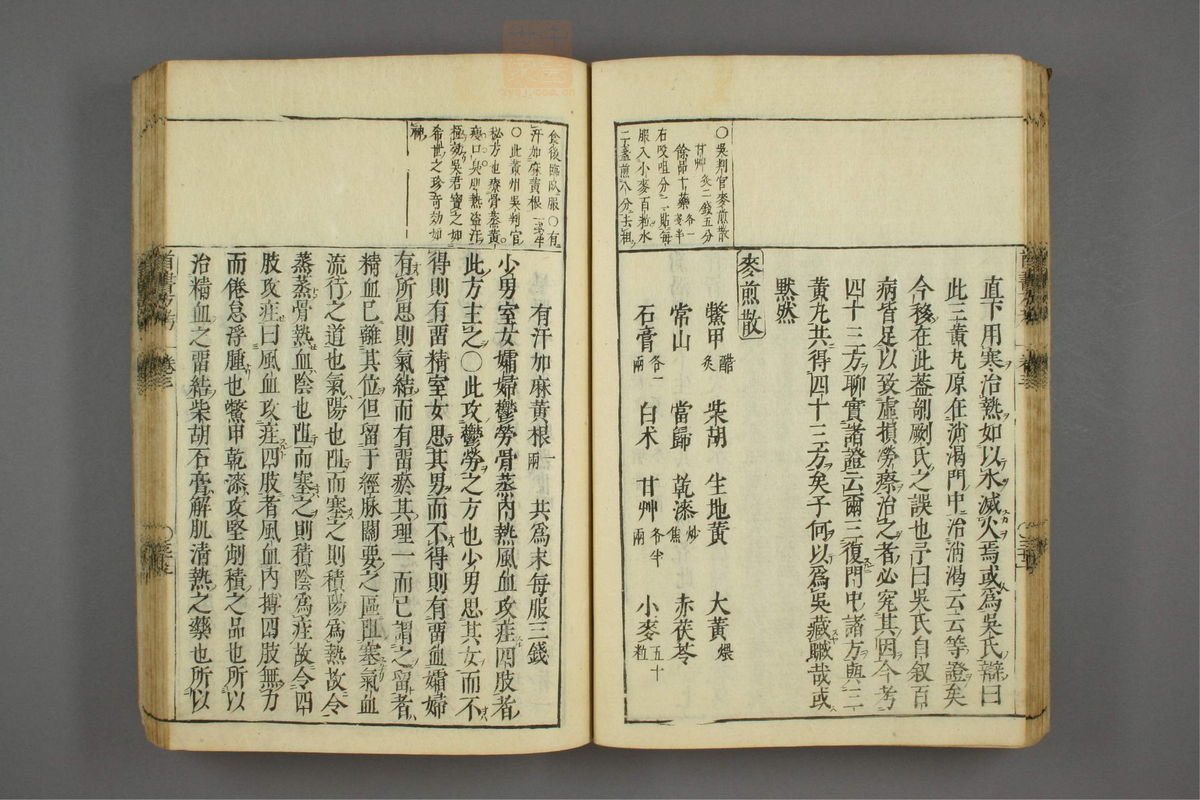 ○吳判官麥煎散
甘艸炙二錢五分
餘品十藥各一戔半
右㕮咀分二貼每
服入小麥百粒水
二盞煎八分去柤
直下用寒治熱如以水滅火焉或爲吳氏辯曰
此三黃丸原在消渴門中治消渴云云等證矣
今移在此葢剞劂氏之誤也予曰吳氏自叙百
病皆足以致虛損勞瘵治之者必究其因今考
四十三方聊實諸證云爾三復門中諸方與三
黃丸共得四十三方矣子何以爲吳藏臟哉或
黙然
麥煎散
鱉甲醋炙 柴胡 生地黃 大黃煨
常山 當歸 乾漆炒焦 赤茯苓
石膏各一兩 白朮 甘艸各半兩 小麥五十粒
食後臨臥服○有
汗加麻黃根一戔半
○此黃州吳判官
秘方也療骨蒸黃
瘦口臭肌熱盜汗
極効吳君寶之如
希世之珍奇効如
神
有汗加麻黃根一兩 共爲末每服三錢
少男室女孀婦鬱勞骨蒸內熱風血攻疰四肢者
此方主之○此攻鬱勞之方也少男思其女而不
得則有畱精室女思其男而不得則有畱血孀婦
有所思則氣結而有畱瘀其理一而已謂之留者
精血已離其位但留于經脉關要之區阻塞氣血
流行之道也氣陽也阻而塞之則積陽爲熱故令
蒸蒸骨熱血陰也阻而塞之則積陰爲疰故令四
肢攻疰曰風血攻疰四肢者風血內搏四肢無力
而倦怠浮腫也鱉甲乾漆攻堅削積之品也所以
治精血之畱結柴胡石膏解肌清熱之藥也所以